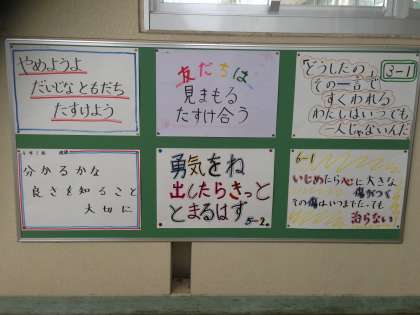 やめようよ
だいじなともだち
たすけよう
友だちは
見まもる
たすけ合う
3-1
「どうしたの」
その一言で
すくわれる
わたしはいつでも
一人じゃないんだ
分かるかな
良さを知ること
大切に
勇気をね
出したらきっと
とまるはず
5-2
6-1
いじめたら心に大きな
傷がつく
その傷はいつまでたっても
治らない